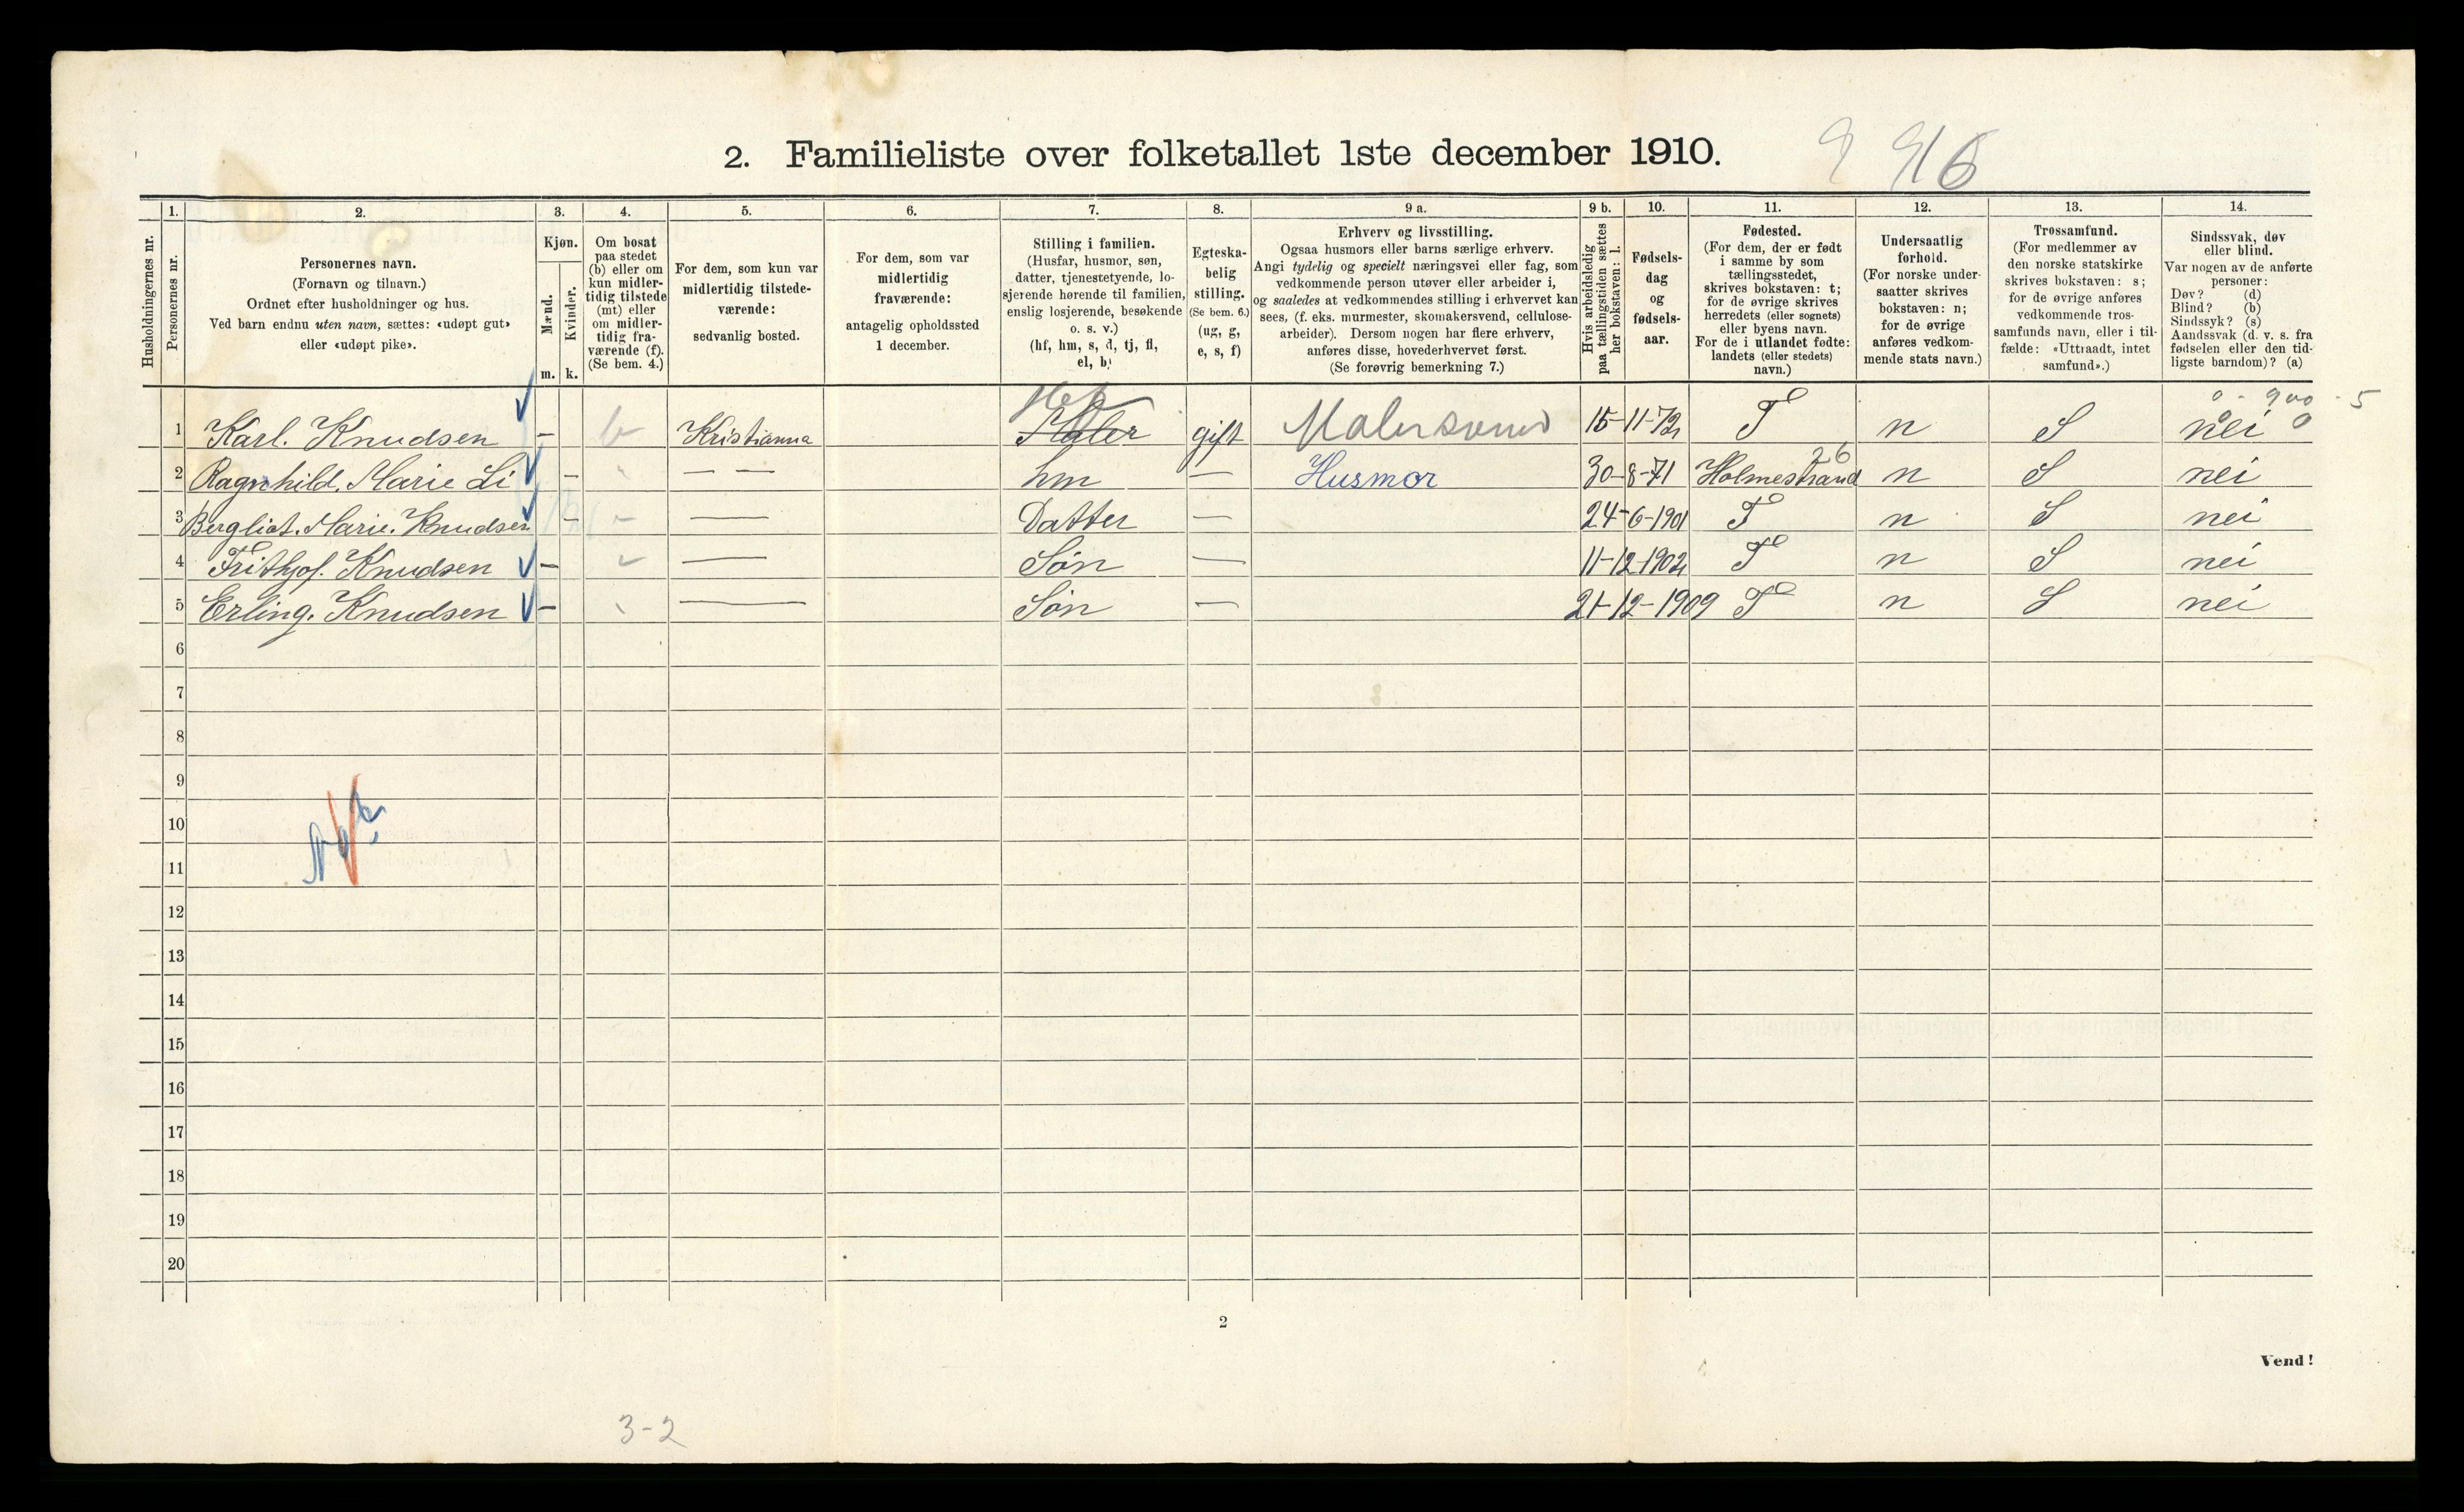 2. Familieliste over folketallet 1ste december 1910.
Husholdningernes nr.
1. Personernes nr.
2. Personernes navn.
(Fornavn og tilnavn.)
Ordnet efter husholdninger og hus.
Ved barn endnu uten navn, sættes: «udøpt gut»
eller «udøpt pike».
3. Kjøn.
Mænd. m.
Kvinder. k.
4. Om bosat
paa stedet
(b) eller om
kun midler-
tidig tilstede
(mt) eller
om midler-
tidig fra-
værende (f).
(Se bem. 4.)
5. For dem, som kun var
midlertidig tilstede-
værende:
sedvanlig bosted.
6. For dem, som var
midlertidig
fraværende:
antagelig opholdssted
1 december.
7. Stilling i familien.
(Husfar, husmor, søn,
datter, tjenestetyende, lo-
sjerende hørende til familien,
enslig losjerende, besøkende
o. s. v.)
(hf, hm, s, d, tj, fl,
el, b)
8. Egteska-
belig
stilling.
(Se bem. 6.)
(ug, g,
e, s, f)
9 a. Erhverv og livsstilling.
Ogsaa husmors eller barns særlige erhverv.
Angi tydelig og specielt næringsvei eller fag, som
vedkommende person utøver eller arbeider i,
og saaledes at vedkommendes stilling i erhvervet kan
sees, (f. eks. murmester, skomakersvend, cellulose-
arbeider). Dersom nogen har flere erhverv,
anføres disse, hovederhvervet først.
(Se forøvrig bemerkning 7.)
9 b. Hvis arbeidsledig
paa tællingstiden sættes
her bokstaven: l.
10. Fødsels-
dag
og
fødsels-
aar.
11. Fødested.
(For dem, der er født
i samme by som
tællingsstedet,
skrives bokstaven: t;
for de øvrige skrives
herredets (eller sognets)
eller byens navn.
For de i utlandet fødte:
landets (eller stedets)
navn.)
12. Undersaatlig
forhold.
(For norske under-
saatter skrives
bokstaven: n;
for de øvrige
anføres vedkom-
mende stats navn.)
13. Trossamfund.
(For medlemmer av
den norske statskirke
skrives bokstaven: s;
for de øvrige anføres
vedkommende tros-
samfunds navn, eller i til-
fælde: «Uttraadt, intet
samfund».)
14. Sindssvak, døv
eller blind.
Var nogen av de anførte
personer:
Døv? (d)
Blind? (b)
Sindssyk? (s)
Aandssvak (d. v. s. fra
fødselen eller den tid-
ligste barndom)? (a)
1 Karl. Knudsen – b Kristiania Maler gift Malersvend 15-11-72 T n S nei
2 Ragnhild. Marie Li – — — hm — Husmor 30-8-71 Holmestrand 26 n S nei
3 Bergliot. Marie. Knudsen – — Datter — 24-6-1901 T n S nei
4 Frithjof. Knudsen – — Søn — 11-12-1902 T n S nei
5 Erling. Knudsen – — Søn — 21-12-1909 T n S nei
6
7
8
9
10
11
12
13
14
15
16
17
18
19
20
2
Vend!
3-2